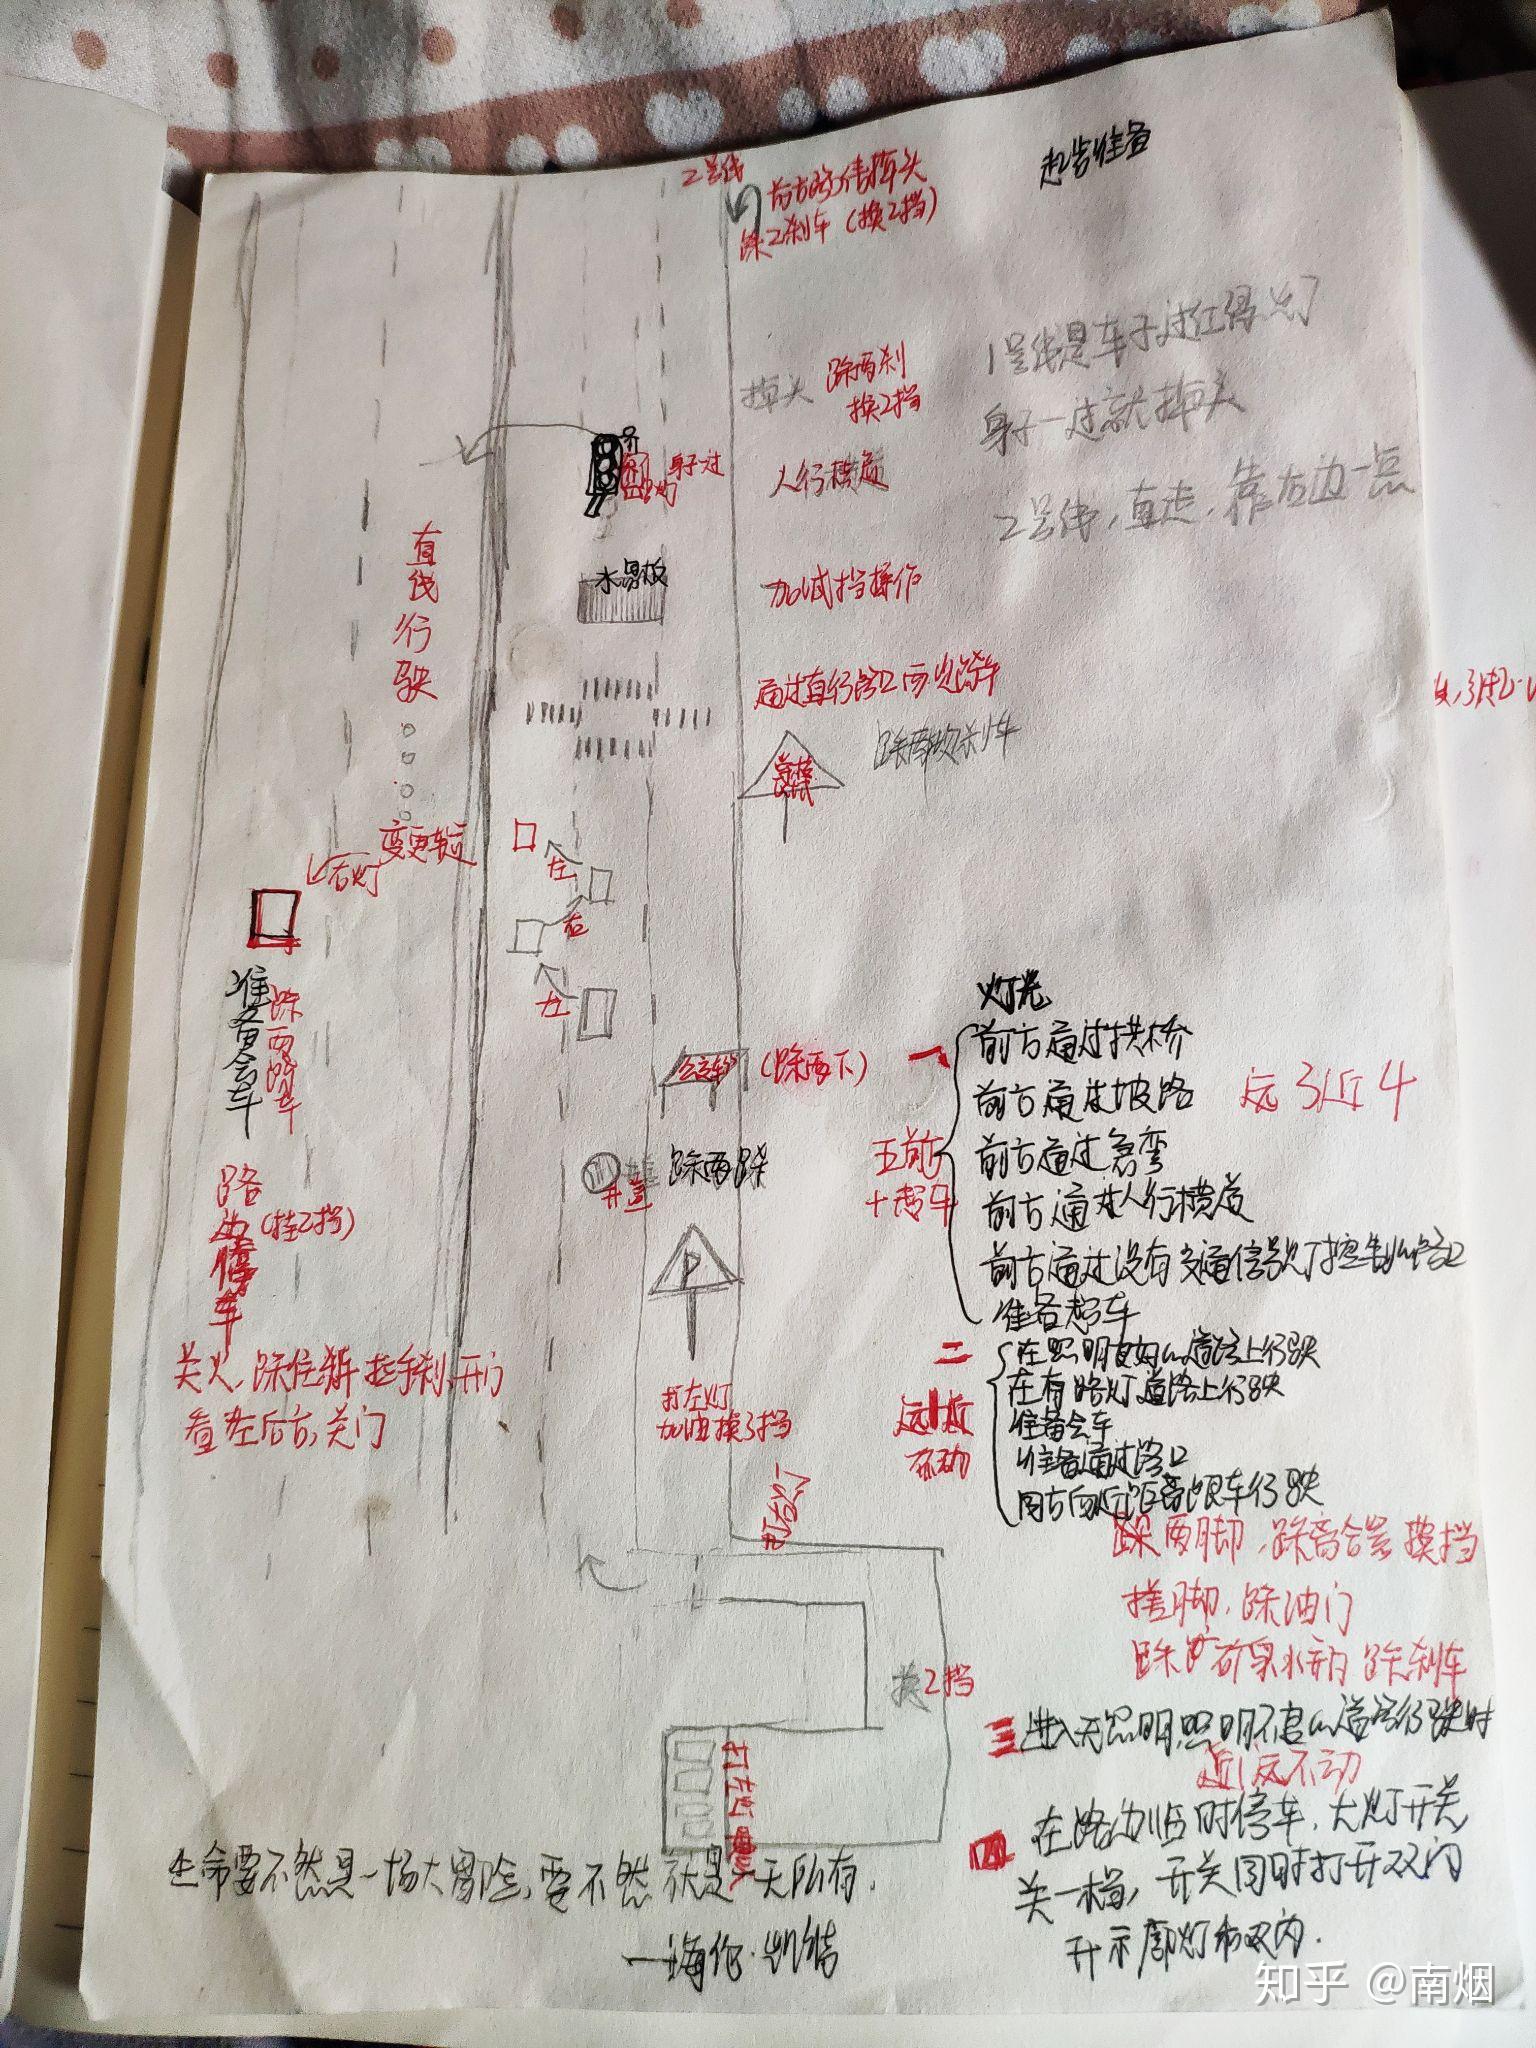 2号线
前方路口掉头
踩2刹车（换2挡）
起步准备
1号线是车子过红绿灯
身子一过就掉头
2号线，直走，靠右边一点
掉头 踩两刹
换2挡
身子过
人行横道
水果板
加减挡操作
直线行驶
通过直行路口两边踩车
变更车道
右灯
左
右
左
准备会车
公交车 (踩两下)
井盖 踩两踩
P
路边停车
(挂2挡)
关火，踩住 拉手刹，开门
看左后方，关门
打左灯
加油换3挡
换2挡
打左灯
灯光
一
前方通过拱桥
前方通过坡路
前方通过急弯
前方通过人行横道
前方通过没有交通信号灯控制的路口
准备超车
五前方
+超车
远3近4
二
在照明良好的道路上行驶
在有路灯道路上行驶
准备会车
准备通过路口
同方向近距离跟车行驶
远1近
不动
踩两脚，踩离合器 换挡
抬脚，踩油门
踩刹车
三 进入无照明，照明不良的道路行驶时
近1远不动
四 在路边临时停车，大灯开关
关一档，开关同时打开双闪
开示廓灯和双闪.
生命要不然是一场大冒险，要不然就是一无所有.
—海伦·凯勒
知乎 @南烟